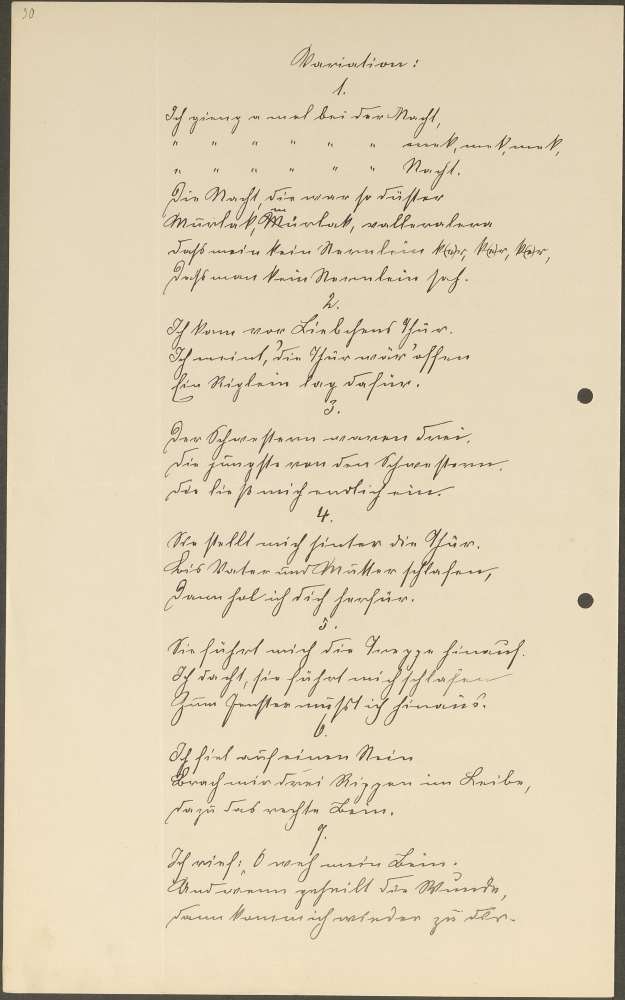 30
Variation:
1.
Ich gieng a mol bei der Nacht,
" " " " " " mek, mek, mek,
" " " " " " Nacht.
Die Nacht, die war so düster
Murlak, Murlak, valleralera
dass mein kein Sternlein
Dass man kein Sternlein sah.
2.
Ich kam vor Liebchens Thür.
Ich meint, die Thür wär offen
Ein Riglein lag dafür.
3.
Der Schwestern waren drei.
Die jüngste von den Schwestern.
die ließ mich endlich ein.
4.
Sie stellt mich hinter die Thür.
Bis Vater und Mutter schlafen,
Dann hol ich dich herfür.
5.
Sie führt mich die Treppe hinauf.
Ich dacht, sie führt mich schlafen
Zum Fenster musst ich hinaus.
6.
Ich fiel auf einen Stein
Brach mir drei Rippen im Leibe,
dazu das rechte Bein.
7.
Ich rief: O weh mein Bein.
Und wenn geheilt die Wunde,
dann komm ich wieder zu dir.